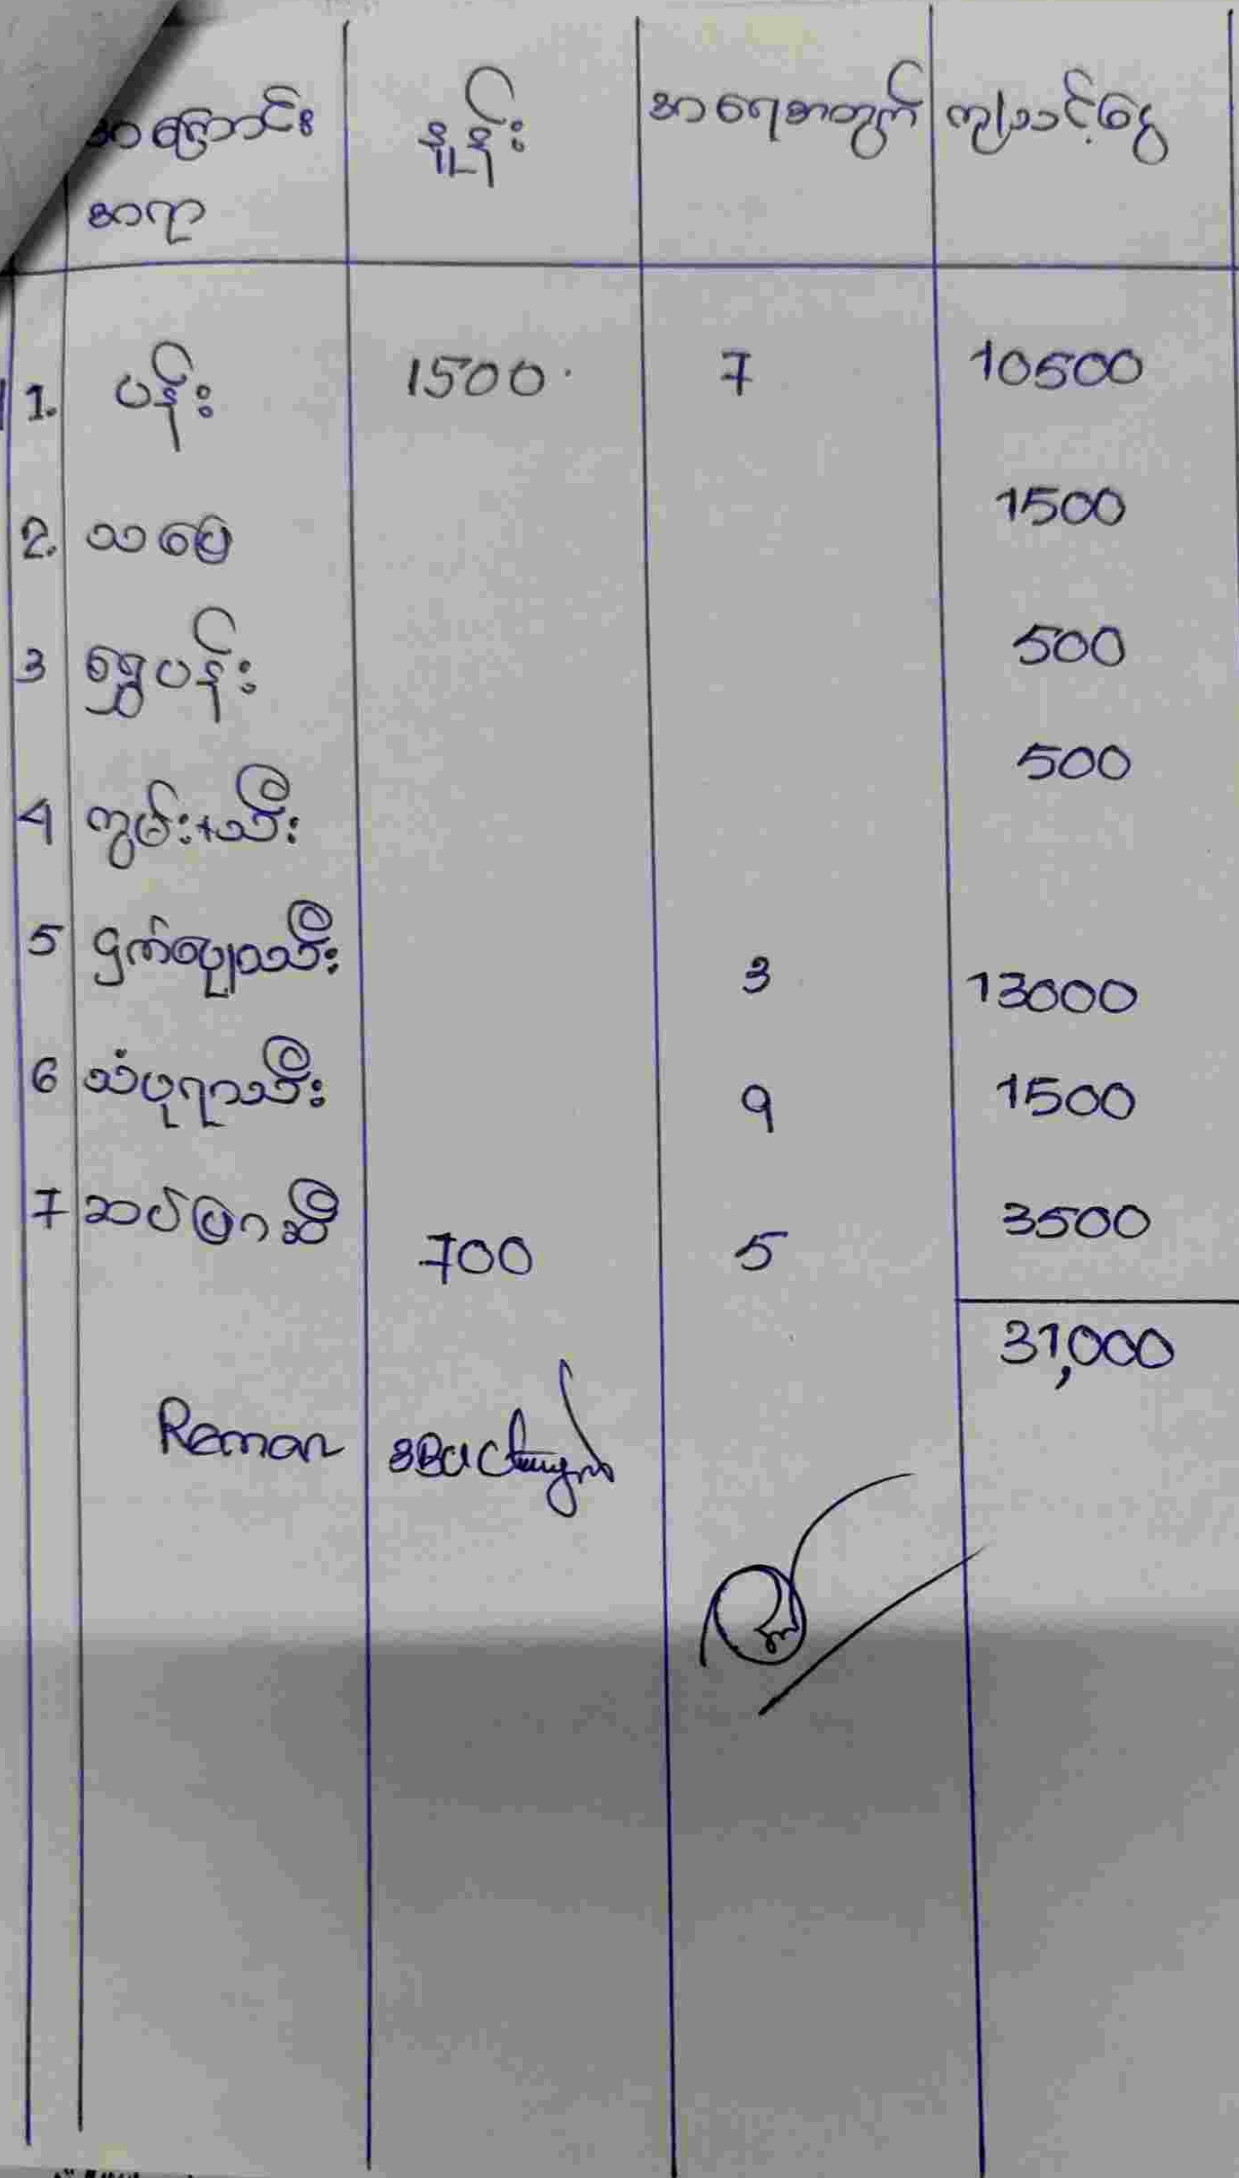 အကြောင်း နှုန်း အရေအတွက် ကျသင့်ငွေ
အရာ
1. ပန်း 1500 7 10500
2. သပြေ 1500
3 ရွှေပန်း 500
4 ကွမ်း+သီး 500
5 ငှက်ပျောသီး 3 13000
6 သံပုရာသီး 9 1500
7 ဆပ်ပြာဆီ 700 5 3500
31,000